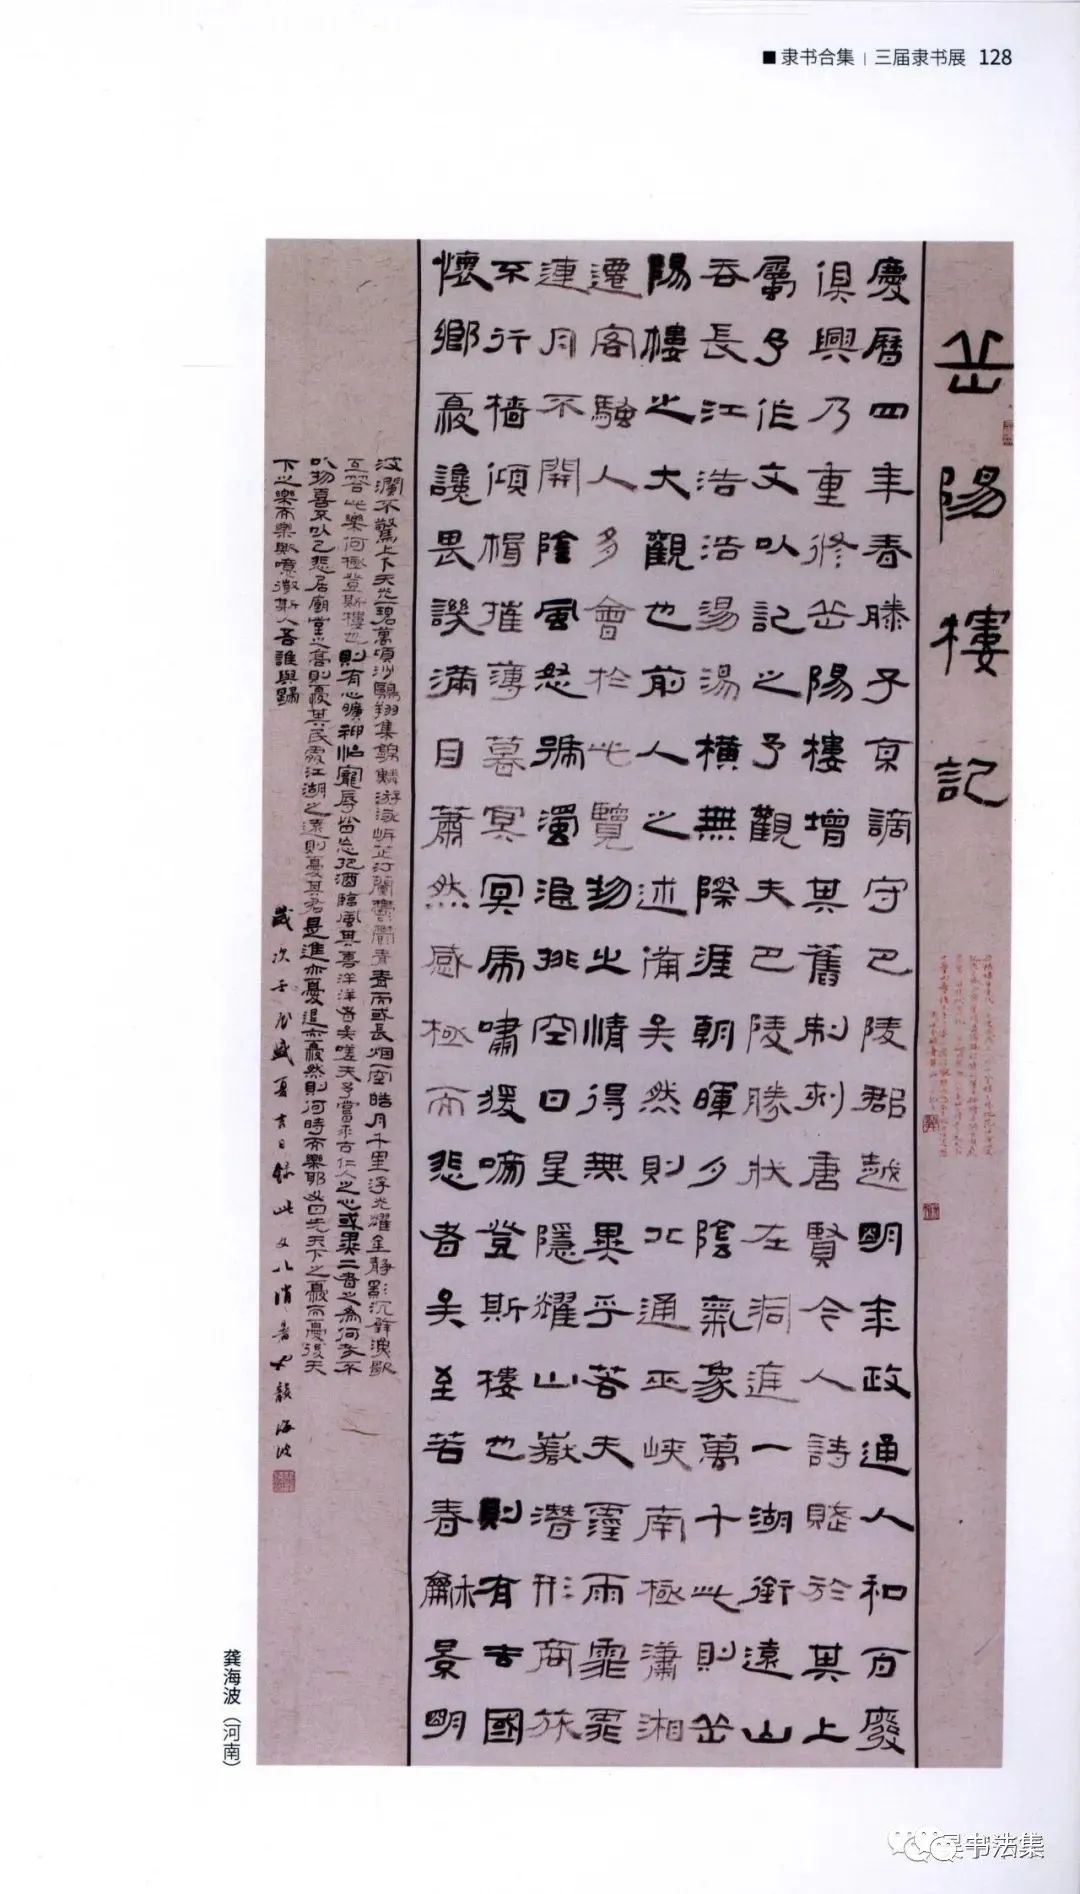 ■ 隶书合集 | 三届隶书展 128
岳陽樓記
慶曆四年春滕子京謫守巴陵郡越明年政通人和百廢
俱興乃重修岳陽樓增其舊制刻唐賢今人詩賦於其上
屬予作文以記之予觀夫巴陵勝狀在洞庭一湖銜遠山
吞長江浩浩湯湯橫無際涯朝暉夕陰氣象萬千此則岳
陽樓之大觀也前人之述備矣然則北通巫峽南極瀟湘
遷客騷人多會於此覽物之情得無異乎若夫霪雨霏霏
連月不開陰風怒號濁浪排空日星隱耀山嶽潛形商旅
不行檣傾楫摧薄暮冥冥虎嘯猨啼登斯樓也則有去國
懷鄉憂讒畏譏滿目蕭然感極而悲者矣至若春龢景明
波瀾不驚上下天光一碧萬頃沙鷗翔集錦鱗游泳岸芷汀蘭鬱鬱青青而或長烟一空皓月千里浮光耀金靜影沉璧漁歌
互答此樂何極登斯樓也則有心曠神怡寵辱皆忘把酒臨風其喜洋洋者矣嗟夫予嘗求古仁人之心或異二者之為何哉不
以物喜不以己悲居廟堂之高則憂其民處江湖之遠則憂其君是進亦憂退亦憂然則何時而樂耶必曰先天下之憂而憂後天
下之樂而樂歟噫微斯人吾誰與歸
歲次壬辰盛夏吉日錄此文以消暑也龔海波
龚海波（河南）
书法集